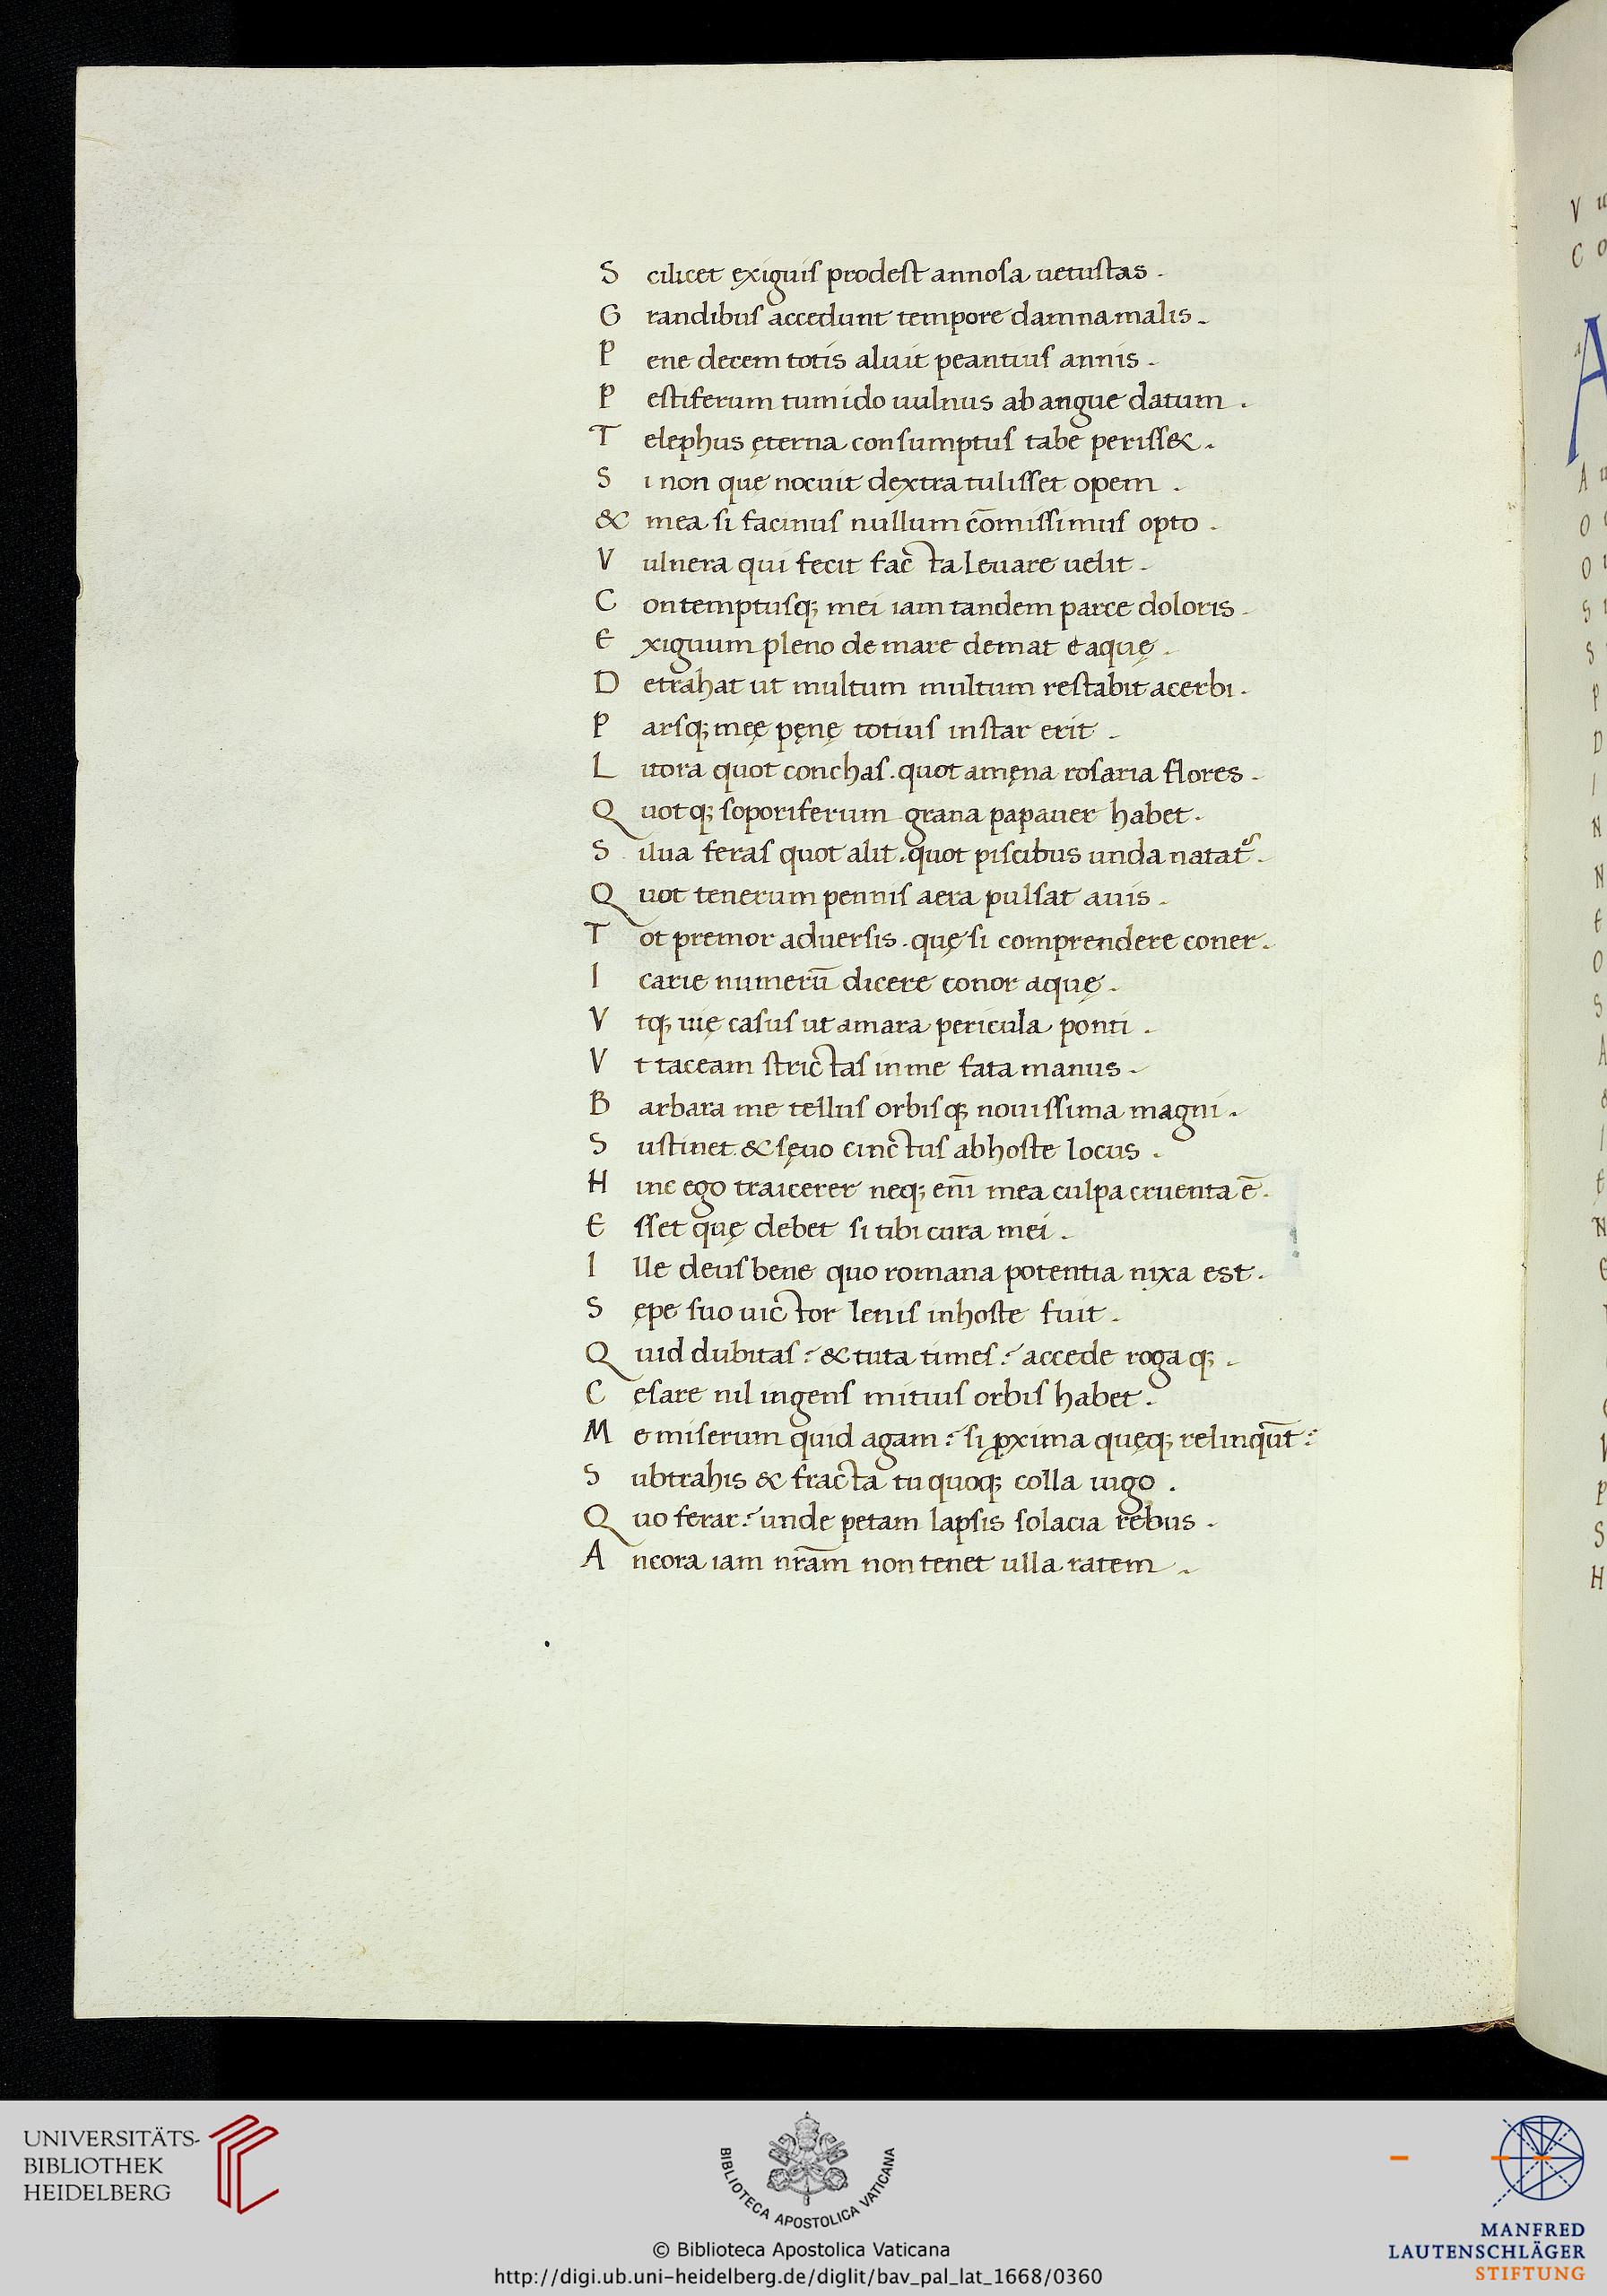 S cilicet exiguis prodest annosa uetustas .
G randibus accedunt tempore damna malis .
P ene decem totis aluit peantius annis .
P estiferum tumido uulnus ab angue datum .
T elephus ęterna consumptus tabe periss& .
S i non que nocuit dextra tulisset opem .
& mea si facinus nullum cōmissimus opto .
V ulnera qui fecit facta leuare uelit .
C ontemptusq; mei iam tandem parce doloris .
E xiguum pleno de mare demat & aquę .
D etrahat ut multum multum restabit acerbi .
P arsq; meę pęnę totius instar erit .
L itora quot conchas . quot amęna rosaria flores .
Q uotq; soporiferum grana papauer habet .
S ilua feras quot alit . quot piscibus unda natat᷒ .
Q uot tenerum pennis aera pulsat auis .
T ot premor aduersis . quę si comprendere coner .
I carie numerū dicere conor aquę .
V tq; uię casus ut amara pericula ponti .
V t taceam strictas in me fata manus .
B arbara me tellus orbisq; nouissima magni .
S ustinet & sęuo cinctus ab hoste locus .
H inc ego traicerer neq; eni̅ mea culpa cruenta ē .
E sset quę debet si tibi cura mei .
I lle deus bene quo romana potentia nixa est .
S ępe suo uictor lenis in hoste fuit .
Q uid dubitas ? & tuta times ? accede rogaq; .
C ęsare nil ingens mitius orbis habet .
M e miserum quid agam ? si ꝓxima quęq; relinqūt ?
S ubtrahis & fracta tu quoq; colla iugo .
Q uo ferar ? unde petam lapsis solacia rebus .
A ncora iam nr̄am non tenet ulla ratem .
UNIVERSITÄTS-
BIBLIOTHEK
HEIDELBERG
BIBLIOTECA APOSTOLICA VATICANA
© Biblioteca Apostolica Vaticana
http://digi.ub.uni-heidelberg.de/diglit/bav_pal_lat_1668/0360
MANFRED
LAUTENSCHLÄGER
STIFTUNG